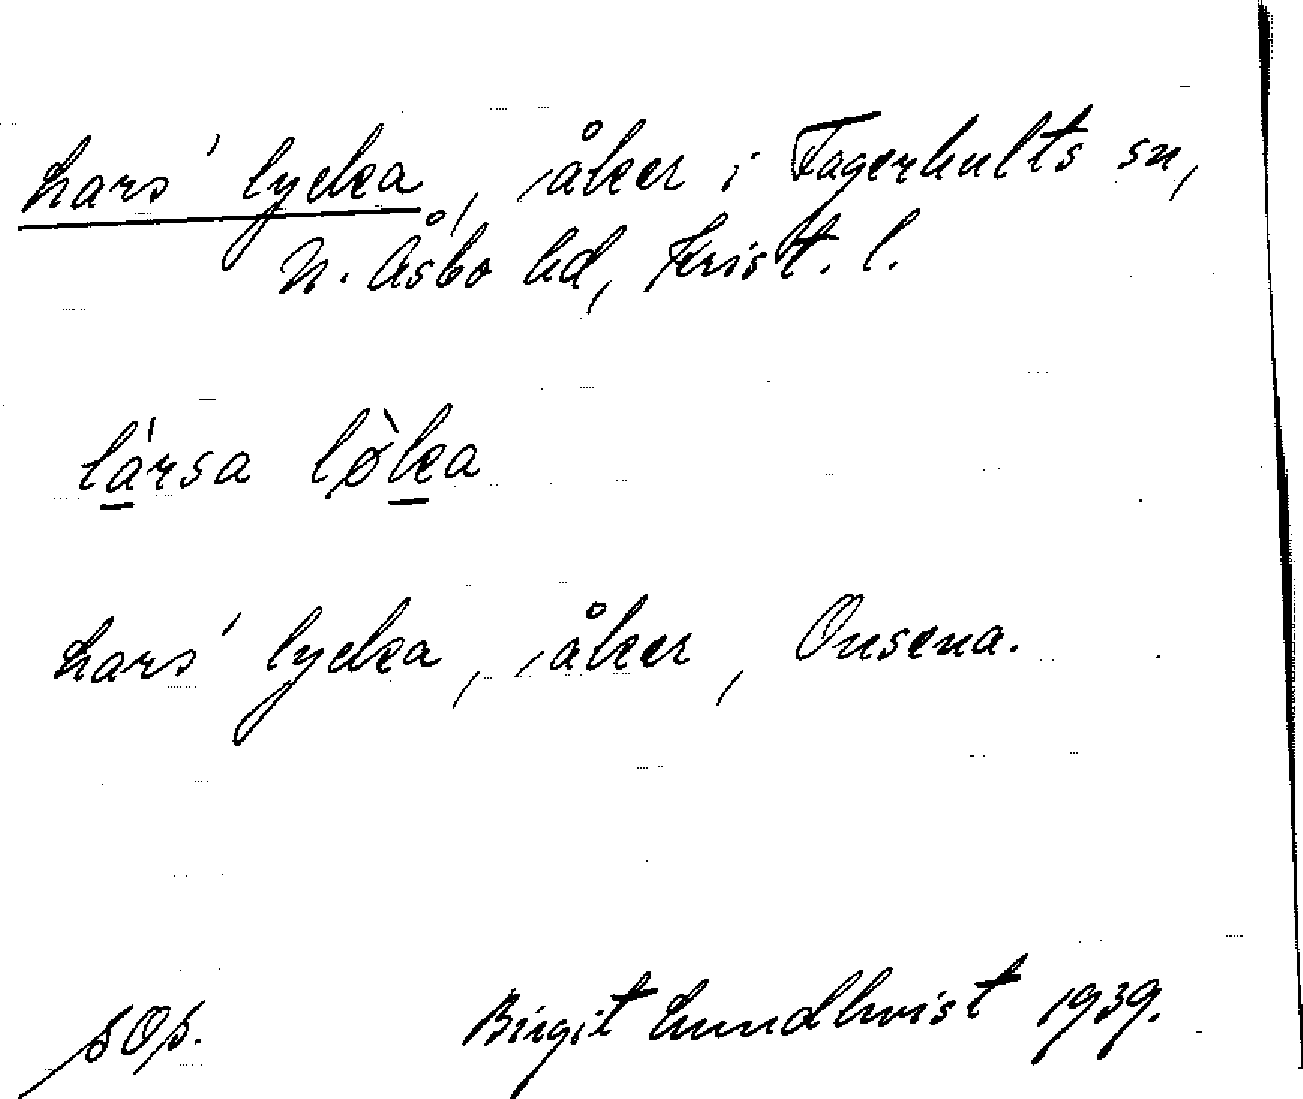 Lars' lycka, åker i Fagerhults sn,
N. Åsbo hd, Krist. l.
lársa lø̀ka
Lars' lycka, åker, Onsena.
SOp. Birgit Lundkvist 1939.